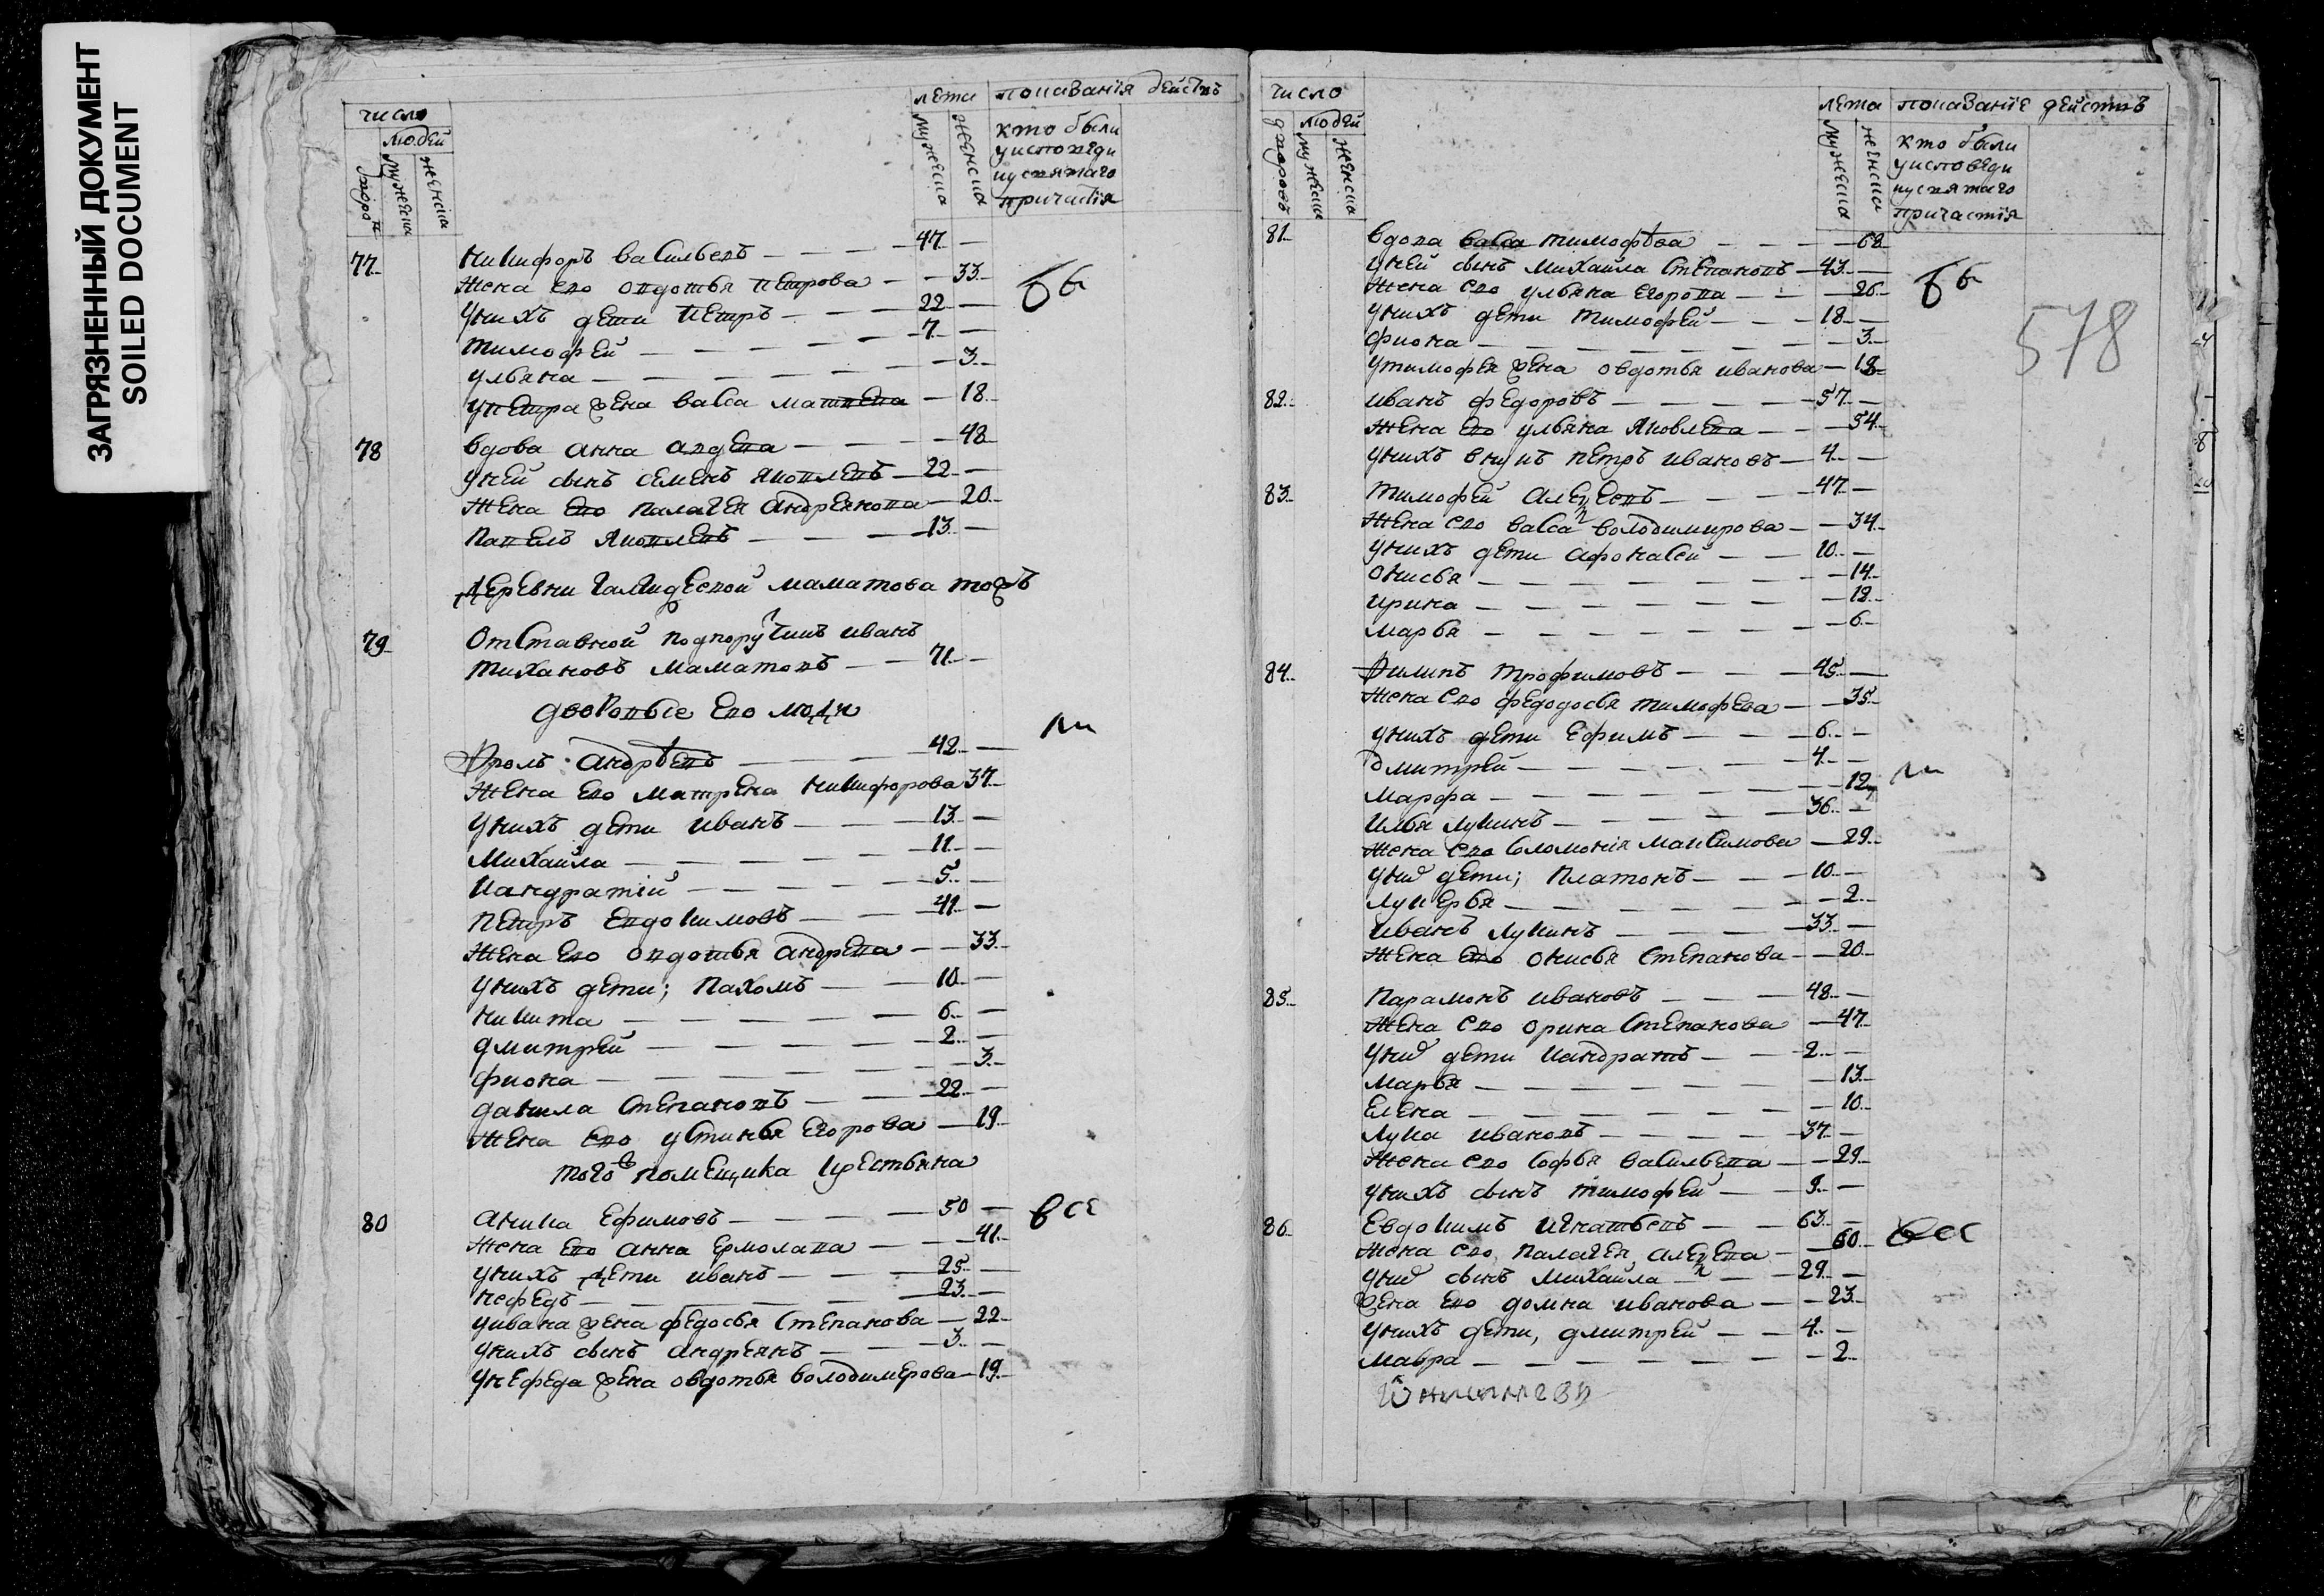 ЗАГРЯЗНЕННЫЙ ДОКУМЕНТ
SOILED DOCUMENT
число
людей
дворовъ
мужеска
женска
лета
мужеска
женска
показания действъ
кто были
у исповеди
и у святаго
причастїя
77 Никифоръ васильевъ 47
Жена ево овдотья петрова 33
У нихъ дети петръ 22
тимофей 7
ульяна 3
у петра жена васса матвева 18
78 Вдова анна авдева 48
У ней сынъ семенъ яковлевъ 22
Жена ево палагея андреянова 20
Павелъ яковлевъ 13
деревни маматова тожъ
79 Отставной подпоручикъ иванъ
тихановъ маматовъ 71
дворовые ево люди
Фролъ андрѣевъ 42
Жена ево матрена никифорова 37
У нихъ дети иванъ 13
Михайла 11
кандратїй 5
петръ евдокимовъ 41
Жена ево овдотья андрева 33
У нихъ дети; пахомъ 10
никита 6
дмитрей 2
фиона 3
данила степановъ 22
Жена ево устинья егорова 19
того помещика крестьяна
80 аника ефимовъ 50 все
Жена ево анна ермолава 41
у нихъ дети иванъ 25
нефедъ 23
у ивана жена федосья степанова 22
у нихъ сынъ андреянъ 3
у нефеда жена овдотья володимерова 19
число
людей
дворовъ
мужеска
женска
лета
мужеска
женска
показанїе действъ
кто были
у исповеди
и у святаго
причастїя
578
81 Вдова васса тимофѣва 68
у ней сынъ михайла степановъ 43
Жена ево ульяна егорова 26
У нихъ дети тимофей 18
фиона 3
У тимофея жена овдотья иванова 19
82 иванъ федоровъ 57
Жена ево ульяна яковлева 54
У нихъ внукъ петръ ивановъ 4
83 тимофей алеѯеевъ 47
Жена ево васса володимирова 34
У нихъ дети афонасей 10
онисья 14
ирина 12
марья 6
84 Филипъ трофимовъ 45
Жена ево федодосья тимофева 35
у нихъ дети ефимъ 6
дмитрей 4
марфа 12
илья лукинъ 36
Жена ево соломонїя максимова 29
у них дети; платонъ 10
лукерья 2
иванъ лукинъ 33
Жена ево онисья степанова 20
85 парамонъ ивановъ 48
Жена ево орина степанова 47
у них дети кандратъ 2
марья 13
елена 10
лука ивановъ 37
Жена ево софья васильева 29
у нихъ сынъ тимофей 9
86 евдокимъ игнатьевъ 63 все
Жена ево палагея алеѯева 60
у них сынъ михайла 29
жена ево домна иванова 23
у нихъ дети, дмитрей 4
мавра 2